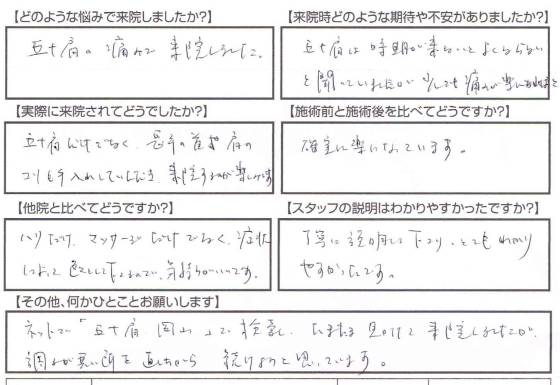 【どのような悩みで来院しましたか?】
五十肩の痛みで来院しました。
【来院時どのような期待や不安がありましたか?】
五十肩は時期が来ないとよくならない
と聞いていましたが少しでも痛みが楽になればと
【実際に来院されてどうでしたか?】
五十肩だけでなく、長年の首や肩の
コリも手入れしていただき、来院するのが楽しみです
【施術前と施術後を比べてどうですか?】
確実に楽になっています。
【他院と比べてどうですか?】
ハリだけ、マッサージだけでなく、症状
によって色々して下さるので、気持ちがいいです。
【スタッフの説明はわかりやすかったですか?】
丁寧に説明して下さり、とてもわかり
やすかったです。
【その他、何かひとことお願いします】
ネットで「五十肩 岡山」で検索し、たまたま見つけて来院しましたが、
調子が悪い所を直しながら続けようと思っています。